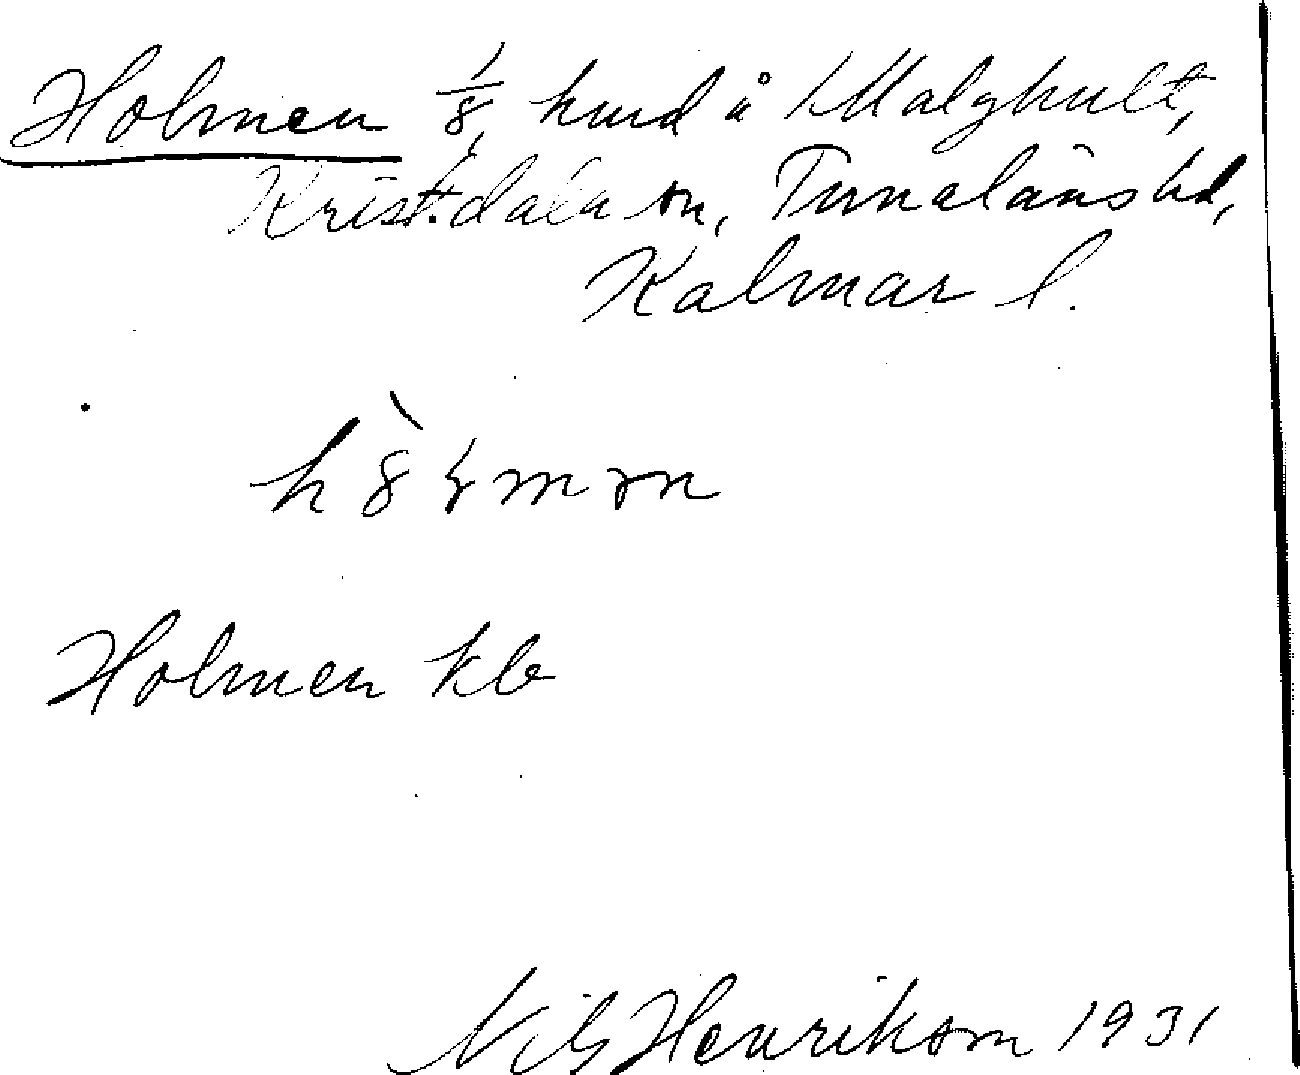 Holmen 1/8, hmd å Malghult,
Kristdala sn, Tunaläns hd,
Kalmar l.
Holmen kb
Nils Henrikson 1931